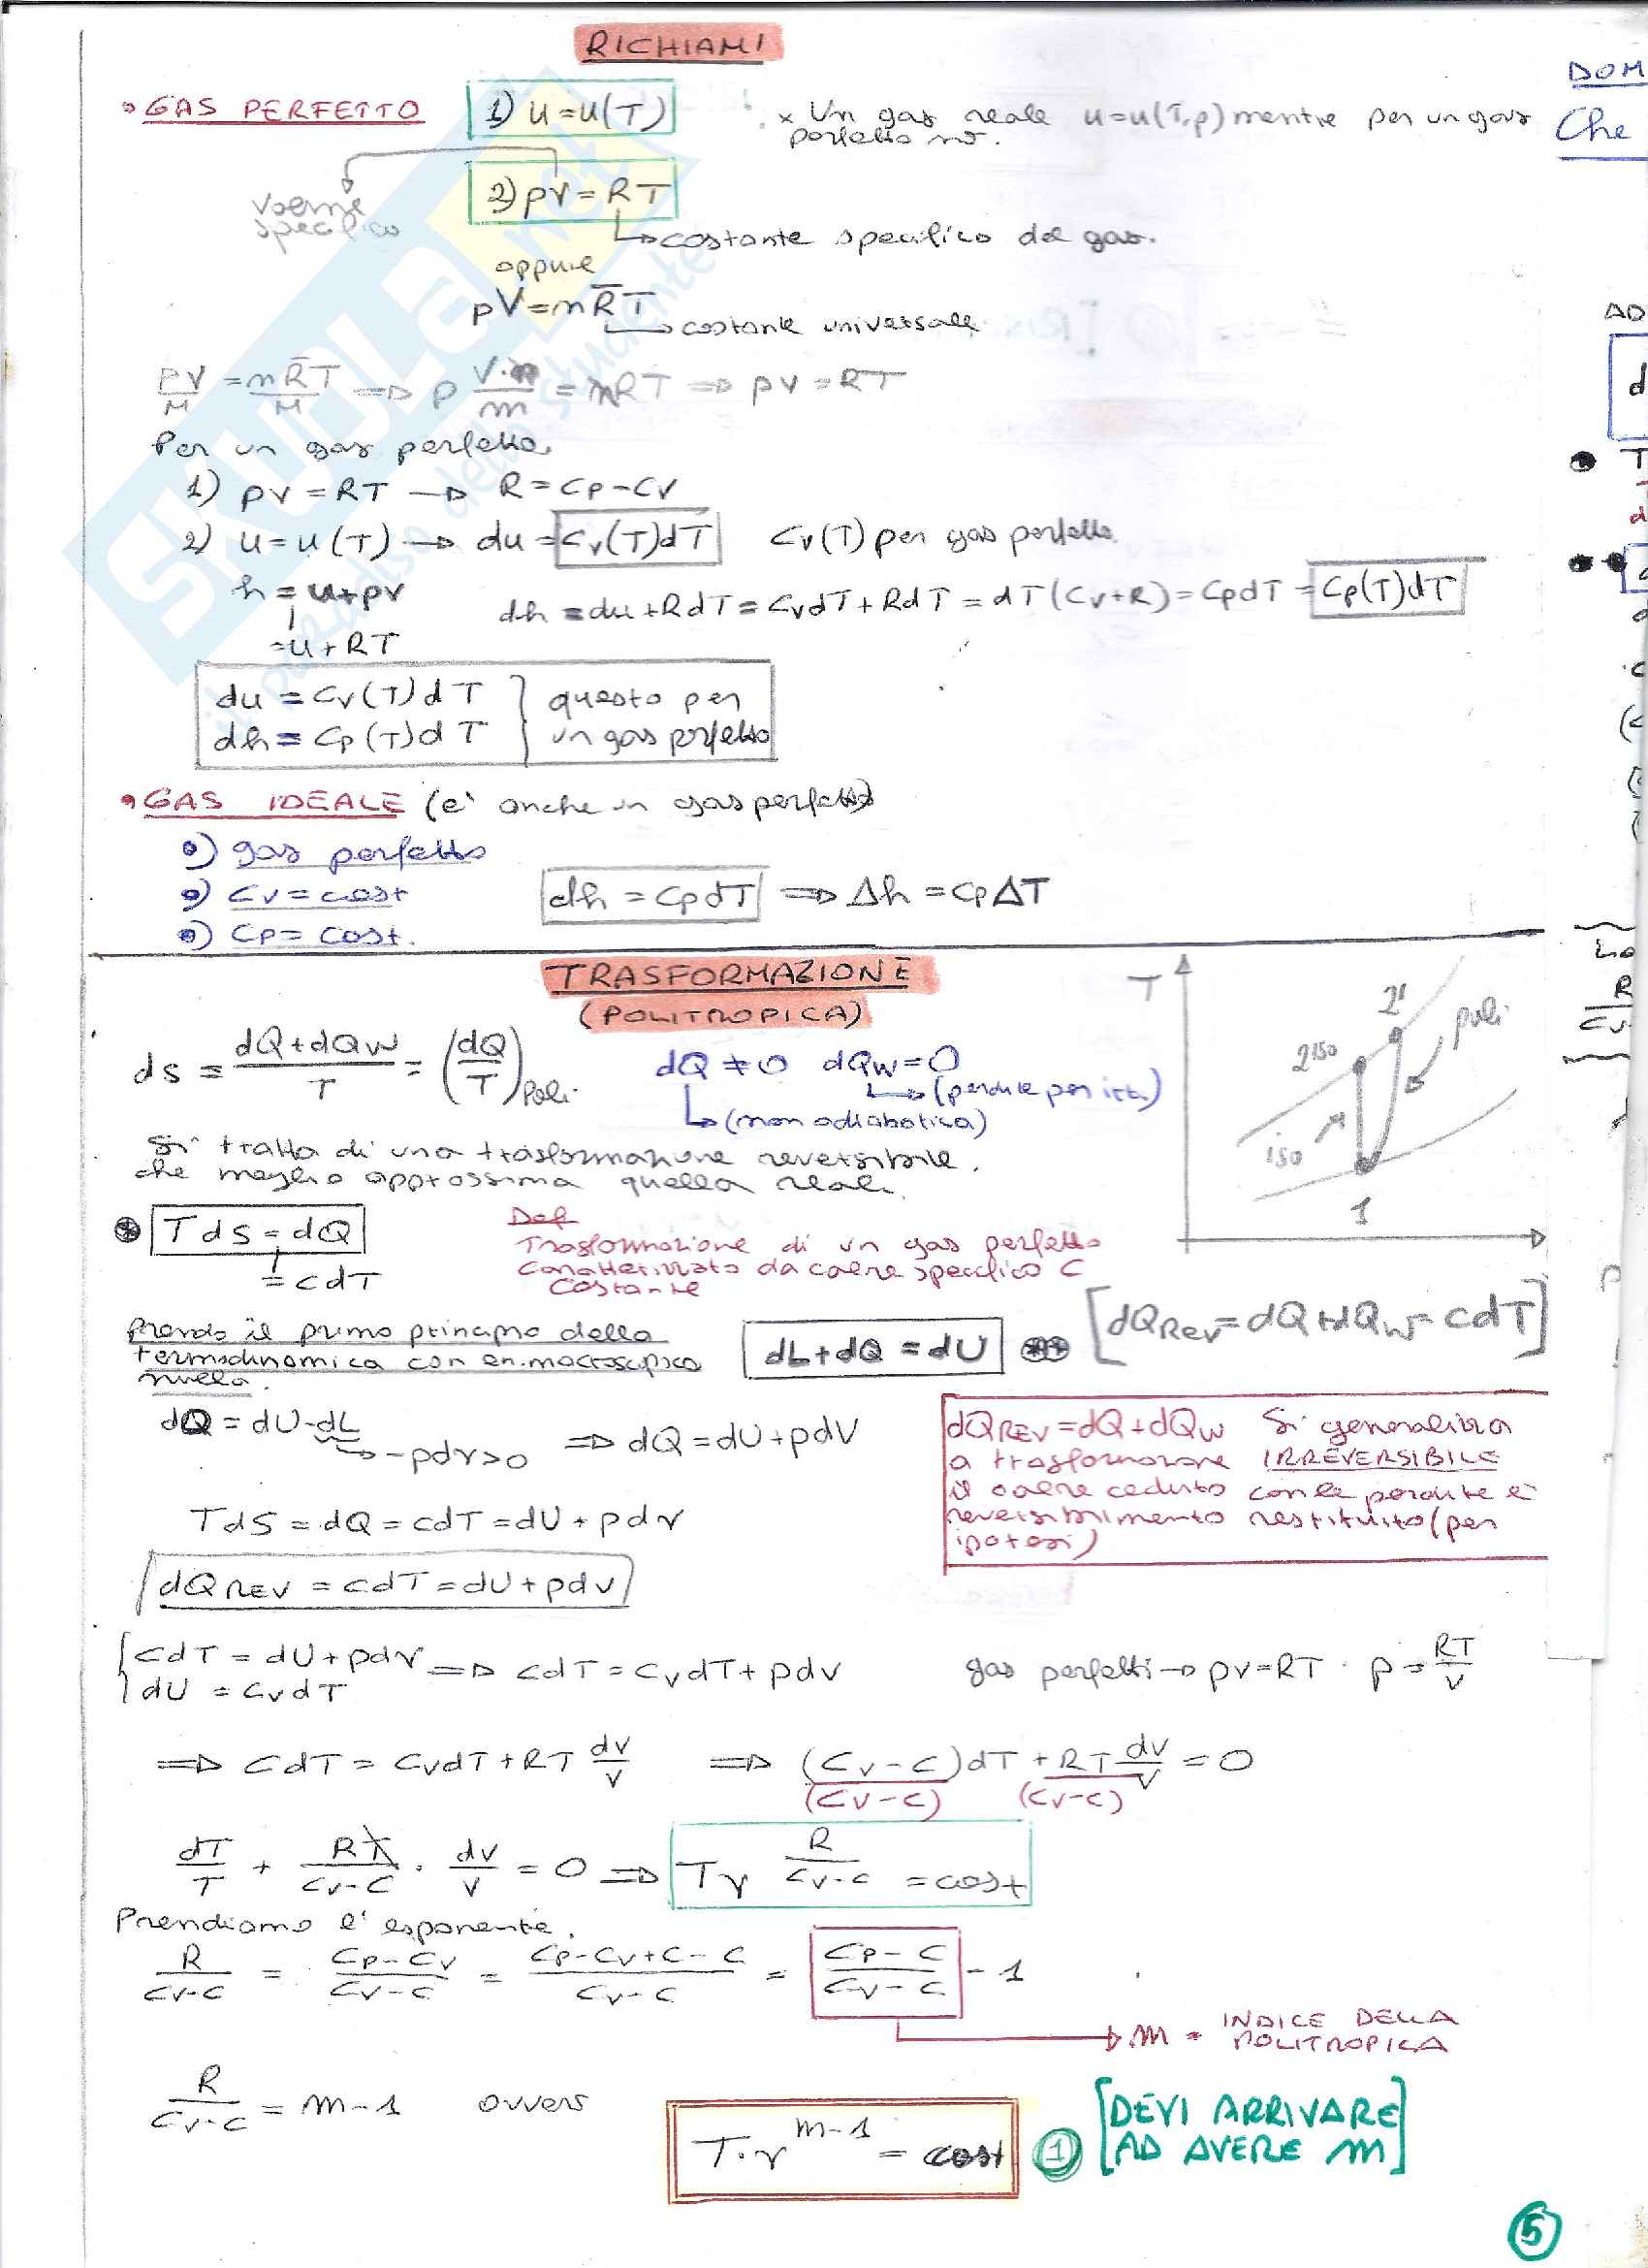 RICHIAMI
• GAS PERFETTO
1) u = u(T)
x Un gas reale u=u(T,p) mentre per un gas
perfetto no.
volume
specifico
2) pv = RT
costante specifico del gas.
oppure
pV = nR̄T
costante universale
pV/M = nR̄T/M ⇒ p V·m/m = mRT ⇒ pv = RT
Per un gas perfetto.
1) pv = RT → R = Cp-Cv
2) u = u(T) → du = Cv(T)dT Cv(T) per gas perfetto.
h = u+pv
dh = du+RdT = CvdT+RdT = dT(Cv+R) = CpdT = Cp(T)dT
= u+RT
du = Cv(T)dT } questo per
dh = Cp(T)dT } un gas perfetto
• GAS IDEALE (e' anche un gas perfetto)
•) gas perfetto
•) Cv = cost
dh = CpdT ⇒ Δh = CpΔT
•) Cp = cost.
TRASFORMAZIONE
(POLITROPICA)
T
2'
2iso
poli
iso
1
ds = (dQ+dQw)/T = (dQ/T)Poli. dQ ≠ 0 dQw = 0
(perdite per irr.)
(non adiabatica)
Si tratta di una trasformazione reversibile.
che meglio approssima quella reali.
⊛ Tds = dQ
= cdT
Def
Trasformazione di un gas perfetto
caratterizzato da calore specifico C
costante
Prendo il primo principio della
termodinamica con en. macroscopica
nulla.
dL+dQ = dU ⊛⊛
[dQRev = dQ+dQw = CdT]
dQ = dU-dL
-pdv>0
⇒ dQ = dU+pdV
dQREV = dQ+dQw Si generalizza
a trasformazione IRREVERSIBILE
il calore ceduto con le perdite è
reversibilmente restituito (per
ipotesi)
TdS = dQ = cdT = dU+pdv
dQREV = cdT = dU+pdv
{CdT = dU+pdv ⇒ CdT = CvdT+pdv gas perfetti → pv=RT · p = RT/v
{dU = CvdT
⇒ CdT = CvdT+RT dv/v ⇒ (Cv-C)dT/(Cv-C) + RT/(Cv-C) dv/v = 0
dT/T + RT/(Cv-C) · dv/v = 0 ⇒ Tv^(R/(Cv-C)) = cost
Prendiamo l'esponente.
R/(Cv-C) = (Cp-Cv)/(Cv-C) = (Cp-Cv+C-C)/(Cv-C) = (Cp-C)/(Cv-C) - 1
m = INDICE DELLA
POLITROPICA
R/(Cv-C) = m-1 ovvero
T·v^(m-1) = cost ①
[DEVI ARRIVARE
AD AVERE m]
5
DOM
Che
AD
SKUOLA.net